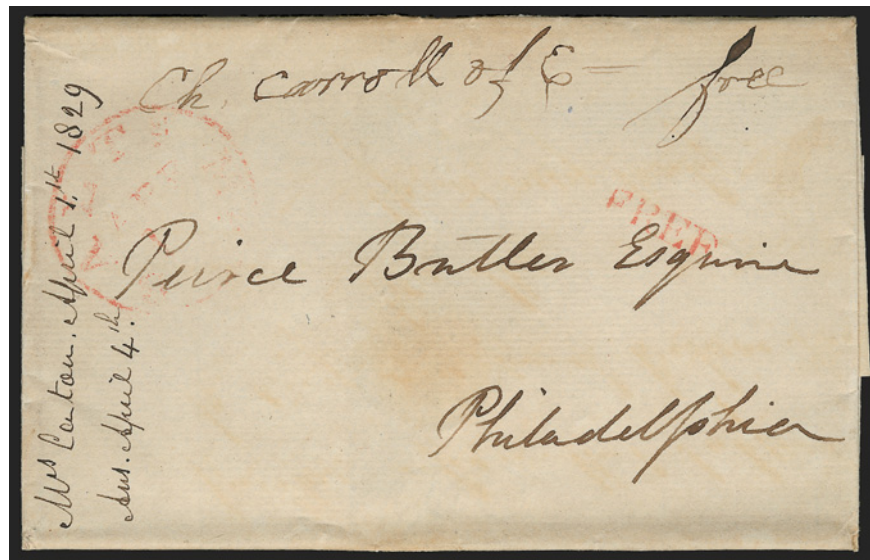 Ch. Carroll of C – free
FREE
APR
Peirce Butler Esquire
Philadelphia
Mrs Caton. April 1.st 1829
Ans. April 4th.